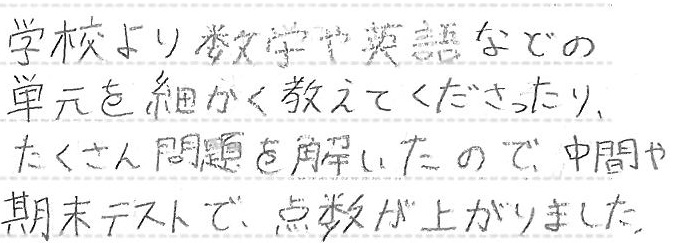 学校より数学や英語などの
単元を細かく教えてくださったり、
たくさん問題を解いたので、中間や
期末テストで、点数が上がりました。